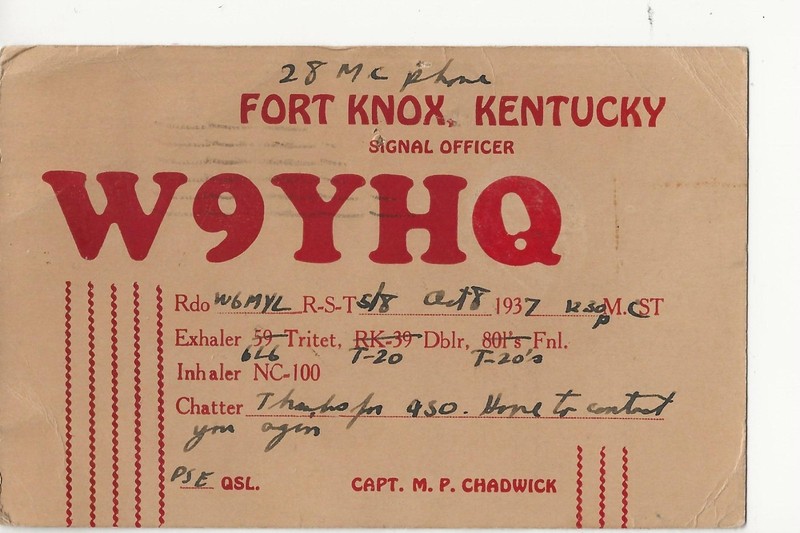 28 Mc phone
FORT KNOX, KENTUCKY
SIGNAL OFFICER
W9YHQ
Rdo W6MYL R-S-T 5/8 Oct 8 1937 1230 P M. CST
Exhaler 59 Tritet, RK-39 Dblr, 801's Fnl.
6L6 T-20 T-20's
Inhaler NC-100
Chatter Thanks for QSO. Hope to contact
you again
PSE QSL. CAPT. M. P. CHADWICK